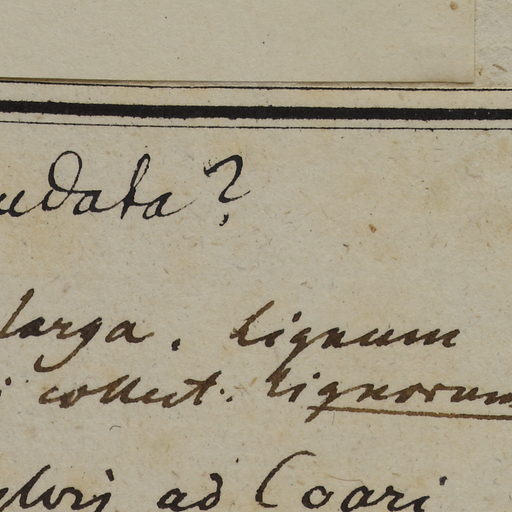 udata?
larga. Lignum
i collect. Lignorum
ylvis ad Coari